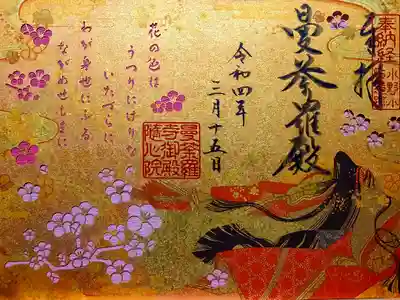 奉納経
奉拝
曼荼羅殿
令和四年
三月十五日
曼荼羅
寺御殿
隨心院
花の色は
うつりにけりな
いたづらに
わが身世にふる
ながめせしまに